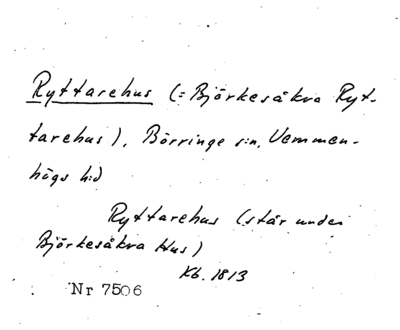 Ryttarehus (= Björkesåkra Ryt-
tarehus), Börringe s:n, Vemmen-
högs h:d
Ryttarehus (står under
Björkesåkra Hus)
Kb. 1813
Nr 7506